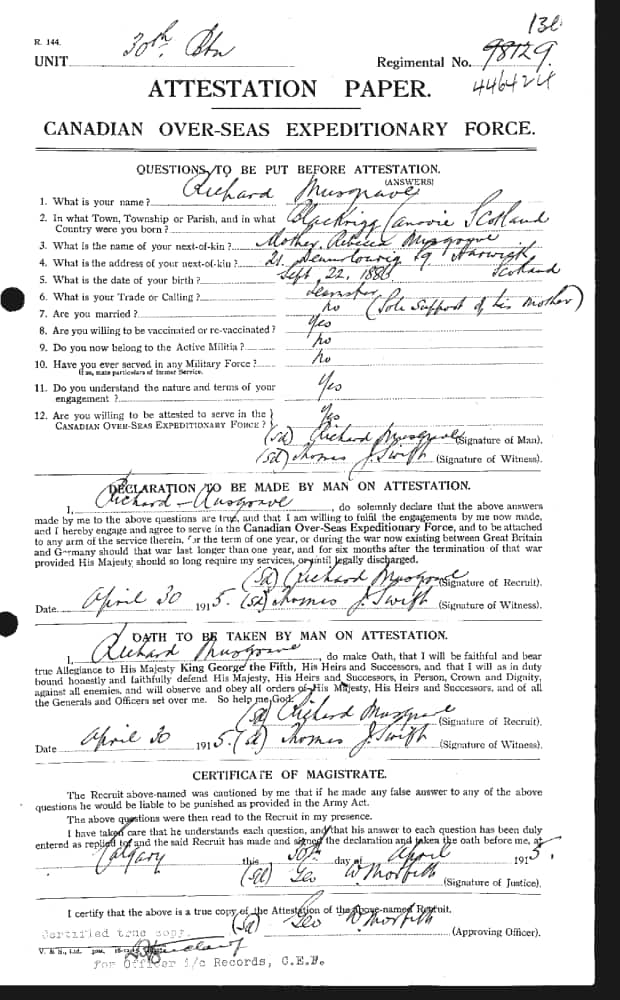 138
R. 144.
30th. Btn
UNIT
Regimental No. 98129.
446424
ATTESTATION PAPER.
CANADIAN OVER-SEAS EXPEDITIONARY FORCE.
QUESTIONS TO BE PUT BEFORE ATTESTATION.
(ANSWERS)
1. What is your name? Richard Musgrave
2. In what Town, Township or Parish, and in what Country were you born? Canovie Scotland
3. What is the name of your next-of-kin? Mother, Rebecca Musgrave
4. What is the address of your next-of-kin? 21. Sq Harwick Scotland
5. What is the date of your birth? Sept 22, 1886
6. What is your Trade or Calling? Teamster
7. Are you married? no (Sole support of his mother)
8. Are you willing to be vaccinated or re-vaccinated? Yes
9. Do you now belong to the Active Militia? no
10. Have you ever served in any Military Force? no
If so, state particulars of former Service.
11. Do you understand the nature and terms of your engagement? Yes
12. Are you willing to be attested to serve in the CANADIAN OVER-SEAS EXPEDITIONARY FORCE? Yes
(sd) Richard Musgrave (Signature of Man).
(sd) Thomas J. Swift (Signature of Witness).
DECLARATION TO BE MADE BY MAN ON ATTESTATION.
I, Richard Musgrave, do solemnly declare that the above answers
made by me to the above questions are true, and that I am willing to fulfil the engagements by me now made,
and I hereby engage and agree to serve in the Canadian Over-Seas Expeditionary Force, and to be attached
to any arm of the service therein, for the term of one year, or during the war now existing between Great Britain
and Germany should that war last longer than one year, and for six months after the termination of that war
provided His Majesty should so long require my services, or until legally discharged.
(sd) Richard Musgrave (Signature of Recruit).
Date April 30 1915. (sd) Thomas J. Swift (Signature of Witness).
OATH TO BE TAKEN BY MAN ON ATTESTATION.
I, Richard Musgrave, do make Oath, that I will be faithful and bear
true Allegiance to His Majesty King George the Fifth, His Heirs and Successors, and that I will as in duty
bound honestly and faithfully defend His Majesty, His Heirs and Successors, in Person, Crown and Dignity,
against all enemies, and will observe and obey all orders of His Majesty, His Heirs and Successors, and of all
the Generals and Officers set over me. So help me God.
(sd) Richard Musgrave (Signature of Recruit).
Date April 30 1915. (sd) Thomas J. Swift (Signature of Witness).
CERTIFICATE OF MAGISTRATE.
The Recruit above-named was cautioned by me that if he made any false answer to any of the above
questions he would be liable to be punished as provided in the Army Act.
The above questions were then read to the Recruit in my presence.
I have taken care that he understands each question, and that his answer to each question has been duly
entered as replied to, and the said Recruit has made and signed the declaration and taken the oath before me, at
Calgary this 30th day of April 1915.
(sd) Geo W. Morfitt (Signature of Justice).
I certify that the above is a true copy of the Attestation of the above-named Recruit.
(sd) Geo W. Morfitt (Approving Officer).
Certified true copy.
V. & S., Ltd.
for Officer i/c Records, C.E.F.